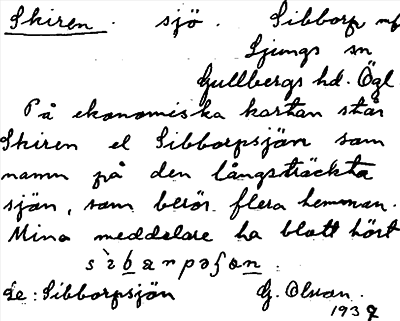 Skiren. sjö. Sibborp nf
Ljungs sn
Gullbergs hd. Ögl.
På ekonomiska kartan står
Skiren el Sibborpsjön som
namn på den långsträckta
sjön, som berör flera hemman.
Mina meddelare ha blott hört
Le: Sibborpsjön G. Olson.